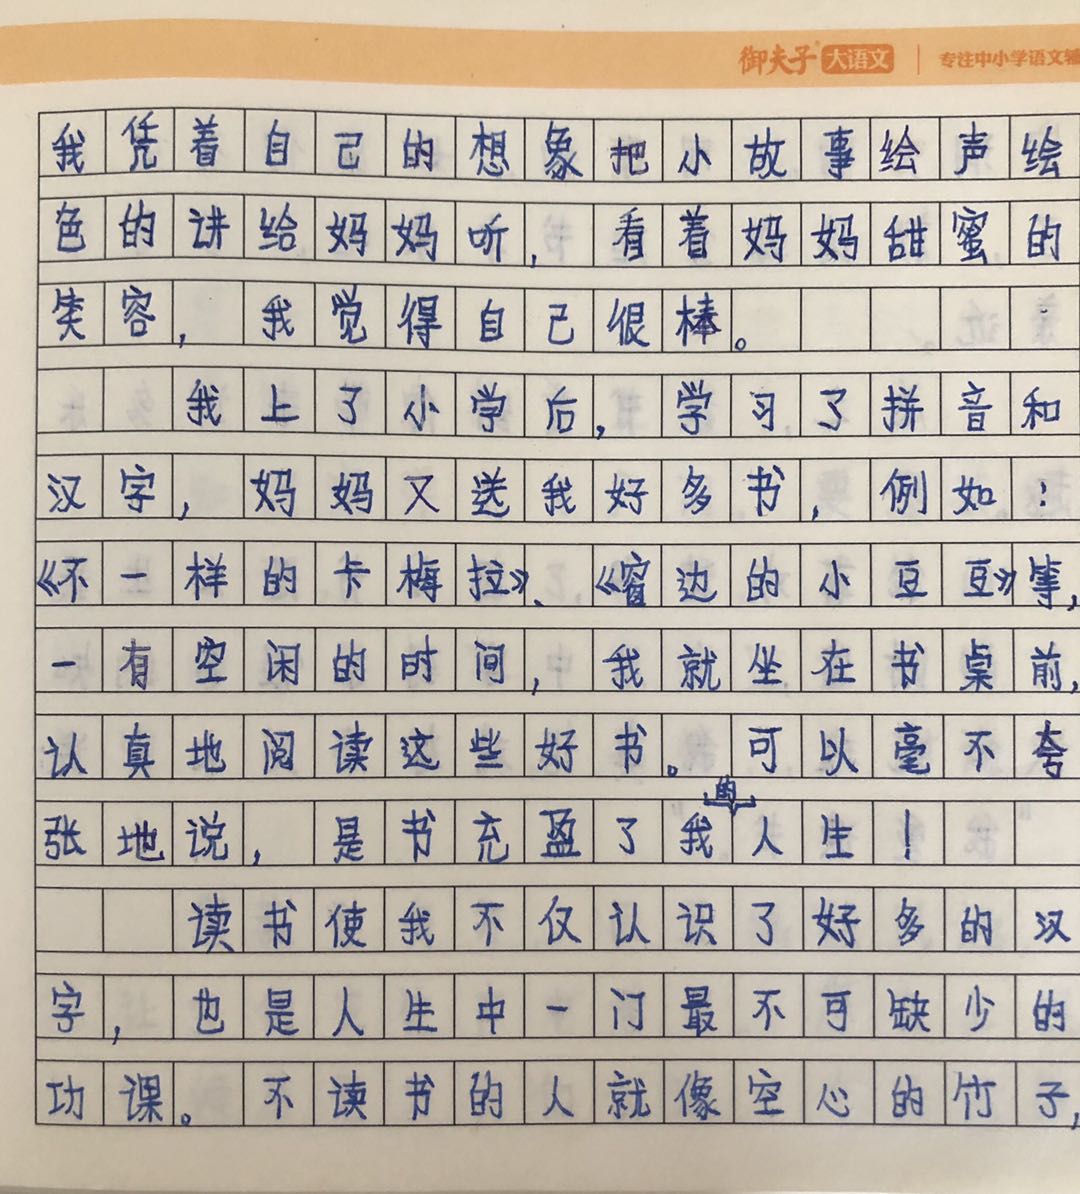 御夫子 大语文 专注中小学语文辅
我凭着自己的想象把小故事绘声绘
色的讲给妈妈听，看着妈妈甜蜜的
笑容，我觉得自己很棒。
我上了小学后，学习了拼音和
汉字，妈妈又送我好多书，例如：
《不一样的卡梅拉》、《窗边的小豆豆》等，
一有空闲的时间，我就坐在书桌前，
认真地阅读这些好书。可以毫不夸
张地说，是书充盈了我的人生！
读书使我不仅认识了好多的汉
字，也是人生中一门最不可缺少的
功课。不读书的人就像空心的竹子，